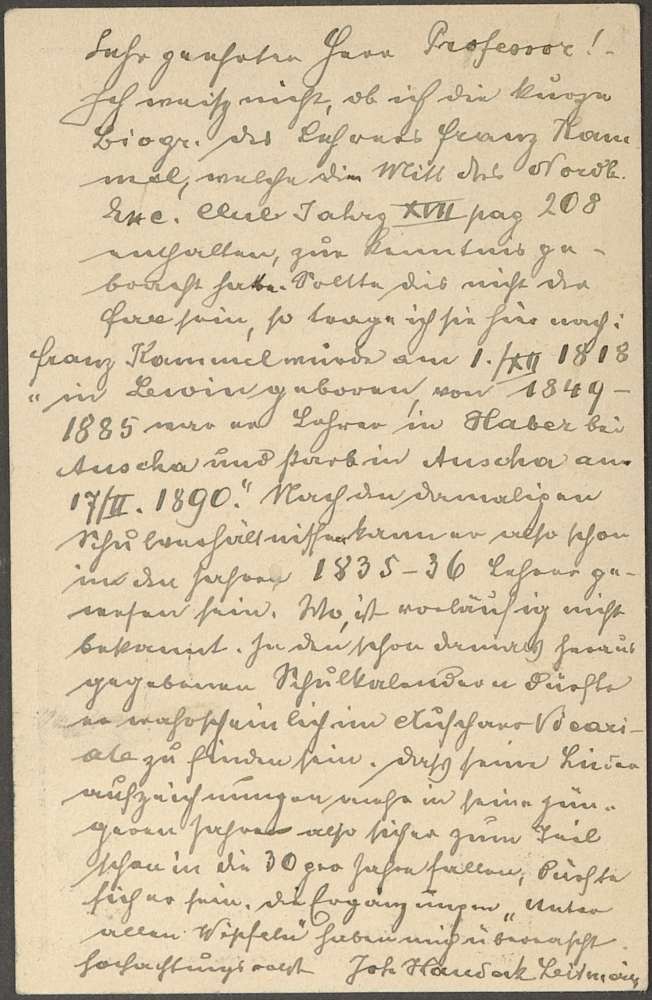 Sehr geehrter Herr Professor!
Ich weiß nicht, ob ich die kurze
Biogr. des Lehrers Franz Kam-
mel, welche die Mitt des Nordb.
Exc. Club Jahrg XVII pag 208
enthalten, zur Kenntnis ge-
bracht habe. Sollte dis nicht der
Fall sein, so trage ich sie hier nach:
Franz Kammel wurde am 1./XII 1818
"in Lewin geboren, von 1849-
1885 war er Lehrer in Haber bei
Auscha und starb in Auscha am
17/II. 1890." Nach den damaligen
Schulverhältnissen kann er also schon
in den Jahren 1835-36 Lehrer ge-
wesen sein. Wo, ist vorläufig nicht
bekannt. In den schon damals heraus
gegebenen Schulkalendern dürfte
er wahrscheinlich im Auschaer Vicari-
ate zu finden sein. Dass seine Lieder
aufzeichnungen mehr in seine jün-
geren Jahre also sicher zum Teil
schon in die 30ger Jahre fallen, dürfte
sicher sein. Die Ergänzungen "Unter
allen Wipfeln" haben mich überrascht.
Hochachtungsvollst Joh Haudeck Leitmeritz